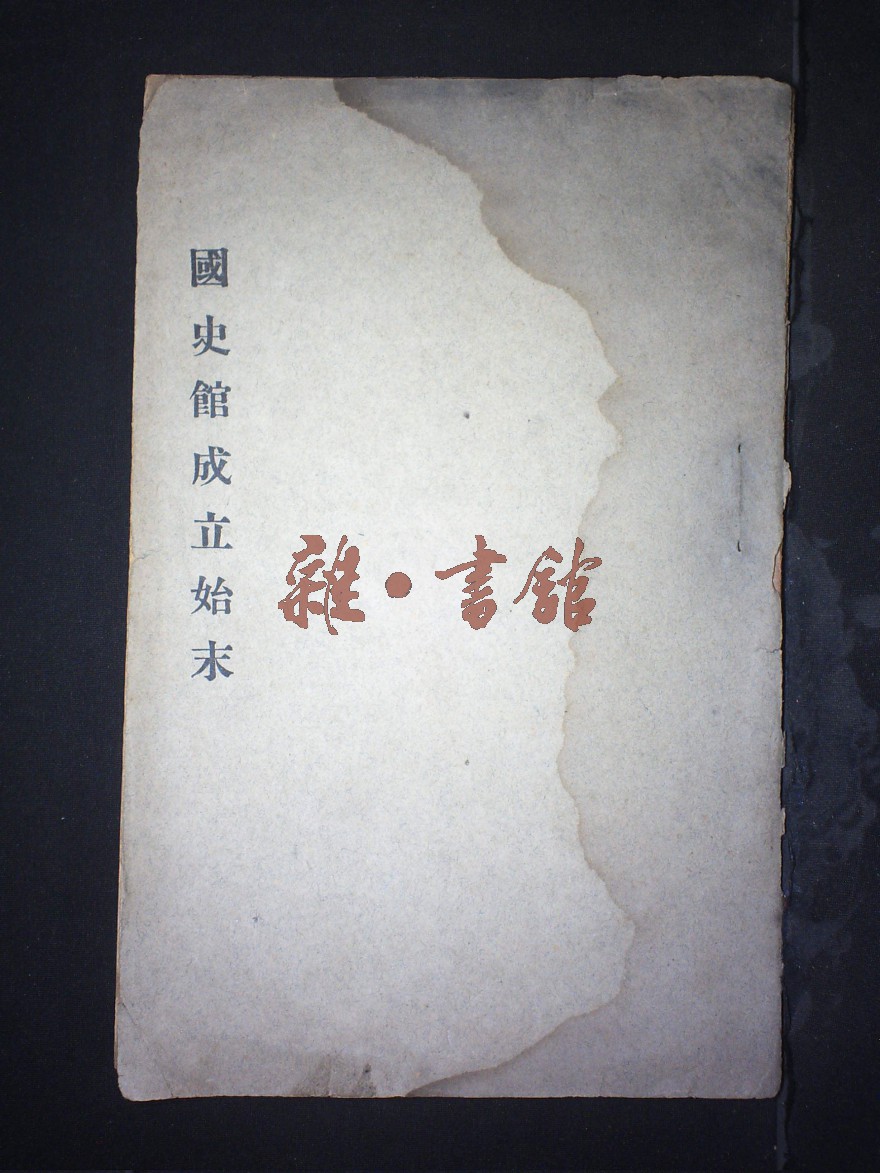 國史館成立始末
雜·書館